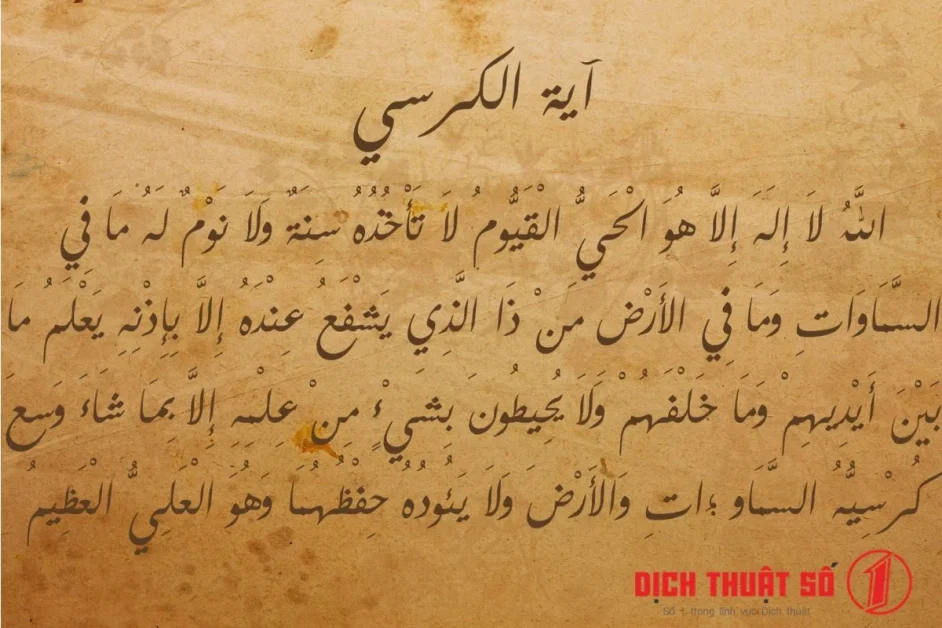 آية الكرسي
اللَّهُ لاَ إِلَهَ إِلاَّ هُوَ الْحَيُّ الْقَيُّومُ لاَ تَأْخُذُهُ سِنَةٌ وَلاَ نَوْمٌ لَهُ مَا فِي
السَّمَاوَاتِ وَمَا فِي الأَرْضِ مَنْ ذَا الَّذِي يَشْفَعُ عِنْدَهُ إِلاَّ بِإِذْنِهِ يَعْلَمُ مَا
بَيْنَ أَيْدِيهِمْ وَمَا خَلْفَهُمْ وَلاَ يُحِيطُونَ بِشَيْءٍ مِنْ عِلْمِهِ إِلاَّ بِمَا شَاءَ وَسِعَ
كُرْسِيُّهُ السَّمَاو ؛اتِ وَالأَرْضَ وَلاَ يَئُودُهُ حِفْظُهُمَا وَهُوَ الْعَلِيُّ الْعَظِيمُ
DỊCH THUẬT SỐ 1
Số 1 trong lĩnh vực Dịch thuật